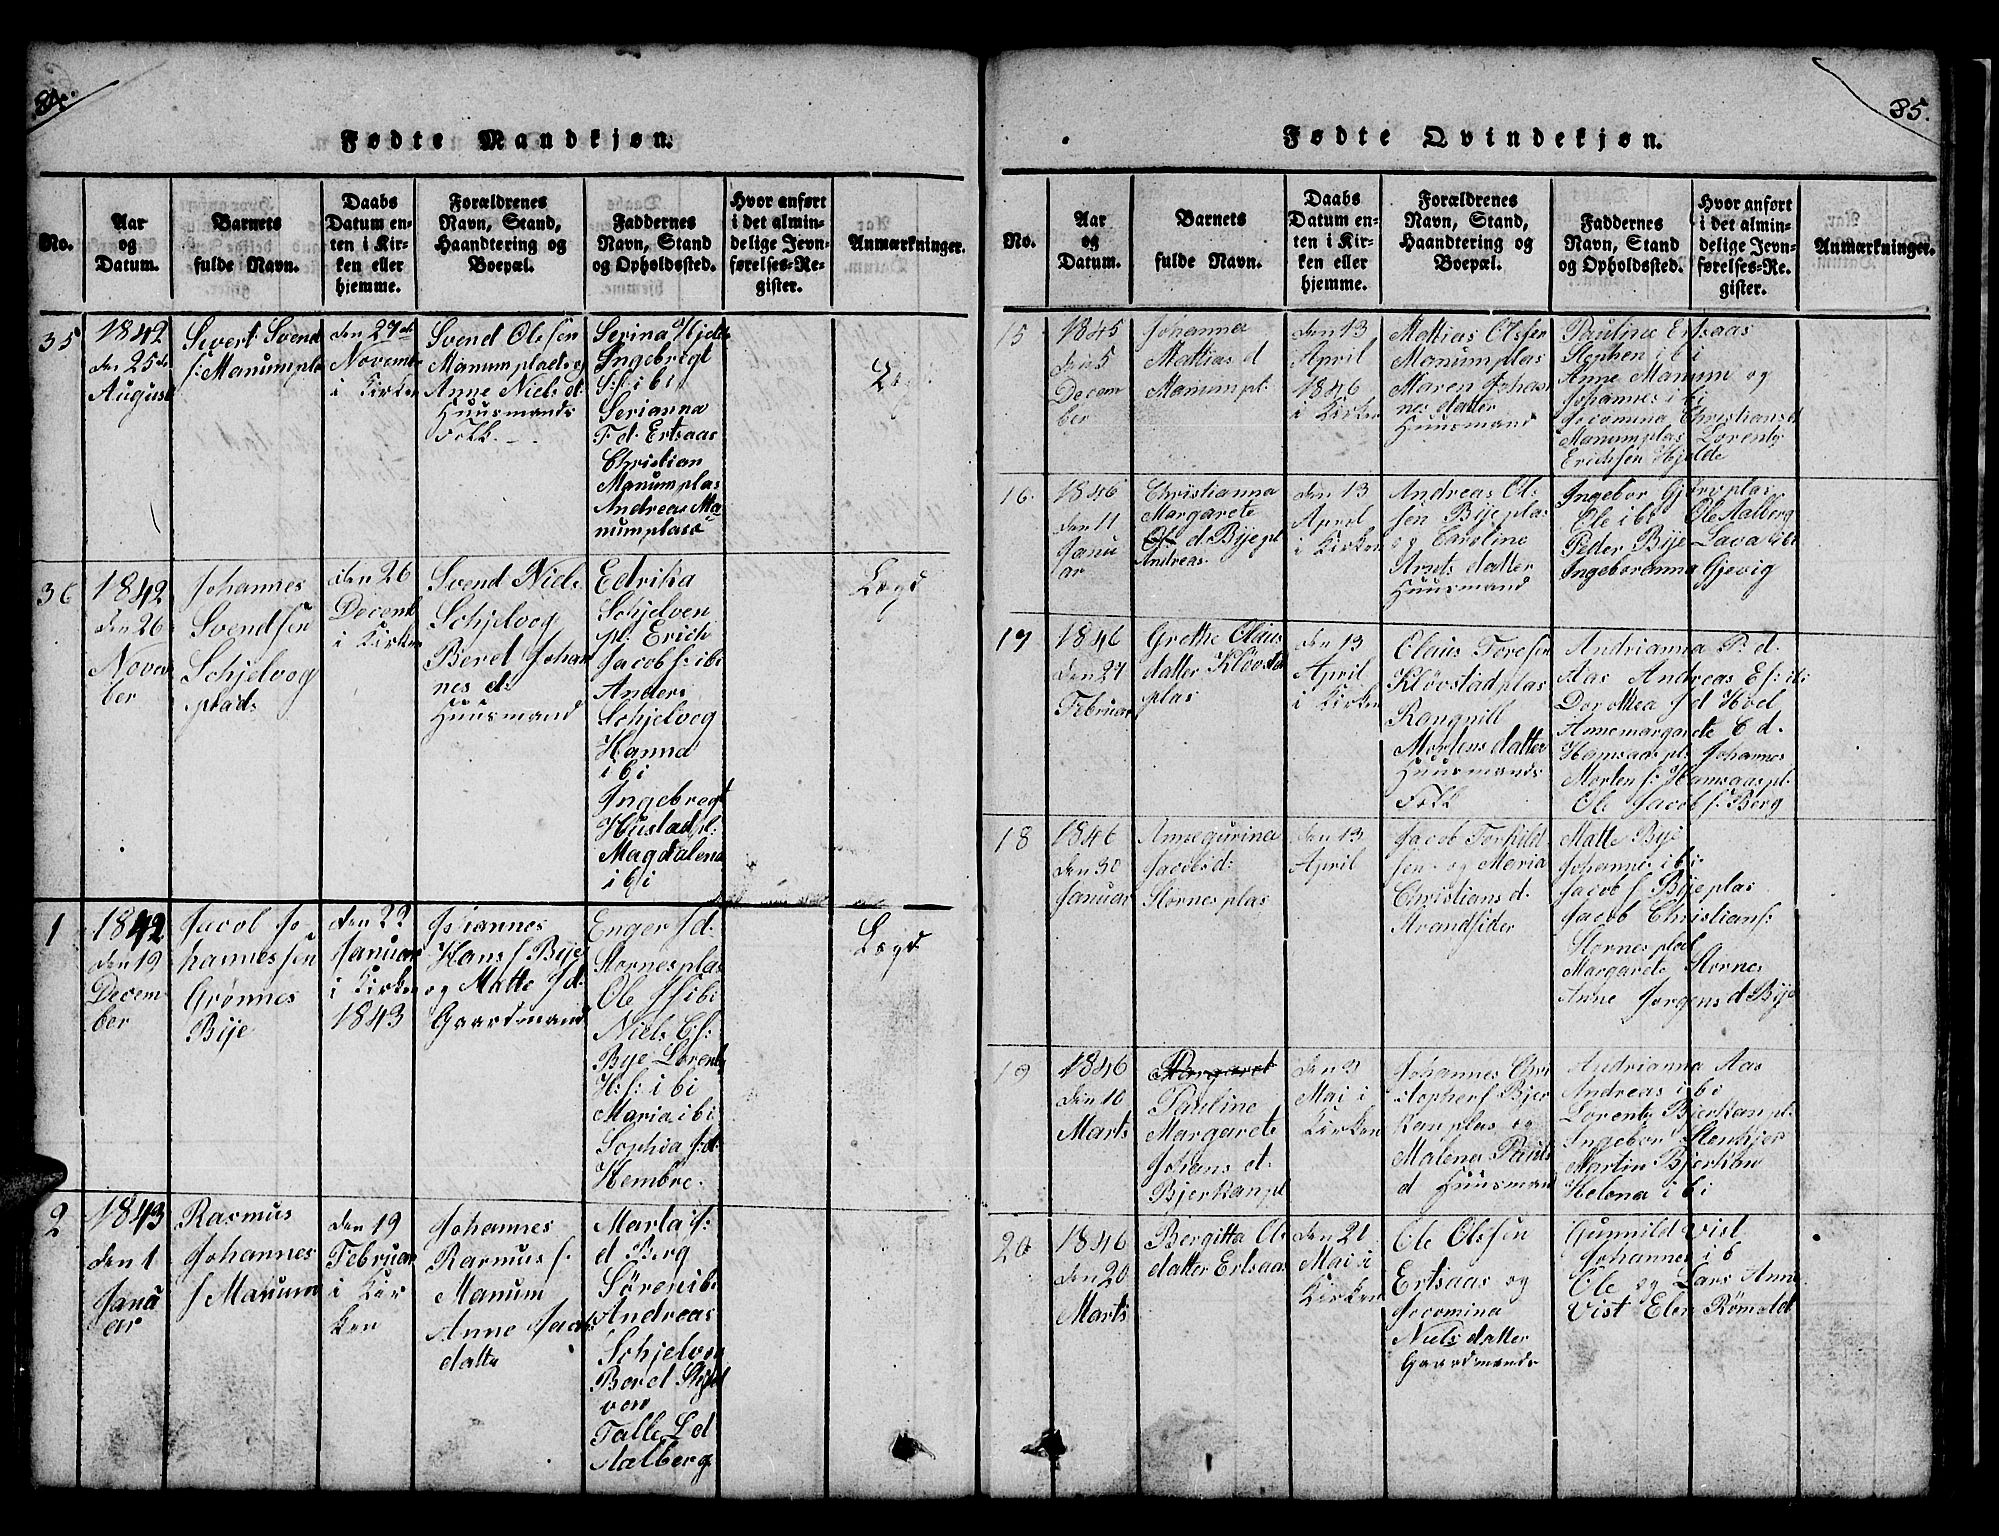 84.
Fødte Mandkjøn.
No.
Aar
og
Datum.
Barnets
fulde Navn.
Daabs
Datum en-
ten i Kir-
ken eller
hjemme.
Forældrenes
Navn, Stand,
Haandtering og
Boepæl.
Faddernes
Navn, Stand
og Opholdssted.
Hvor anført
i det almin-
delige Jevn-
førelses-Re-
gister.
Anmærkninger.
35
1842
den 25de
August
Sivert Svend
s: Manumpla
den 27de
Novembe
i Kirken
Svend Olesen
Manumplads og
Anne Niels d
Huusmands
Folk
Serina Hjelde
Ingebrigt
S: s: ibi
Serianna
F. d. Ertsaas
Christian
Manumplas
Andreas Ma-
numplass
36
1842
den 26
Novem
ber
Johannes
Svendsen
Schjelvog
plads
den 26
Decemb
i Kirken
Svend Niels
Schjelvog
Berel Johan
nes d:
Huusmand
Edrika
Schjelven
pl: Erich
Jacobs: ibi
Anders
Schjelvog
Hanna
ibi
Ingebregt
Hustadpl:
Magdalena
ibi
Lagd
1
1842
den 19
Decem-
ber
Jacob Jo
hannessen
Grønnes
Bije
den 22
Januar
i Kirken
1843
Johannes
Hans s Bije
og Matte J d:
Gaardmand
Enger J d:
Stornesplas
Ole J S ibi
Niels C. s:
Bye Lorents
H: s: ibi
Maria ibi
Sophia J: d:
Hembre.
Lagd
2
1843
den 1
Janu
ar
Rasmus
Johannes
s Manum
den 19
Februar
i Kir
ken
Johannes
Rasmus s.
Manum
Anne Jacobs
datte
Marta J:
d Berg
Søren ibi
Andreas
Schjelvog
Berel Schjel
ven
Talle L d
Aalberg
85.
Fødte Qvindekjøn.
No.
Aar
og
Datum.
Barnets
fulde Navn.
Daabs
Datum en-
ten i Kir-
ken eller
hjemme.
Forældrenes
Navn, Stand,
Haandtering og
Boepæl.
Faddernes
Navn, Stand
og Opholdssted.
Hvor anført
i det almin-
delige Jevn-
førelses-Re-
gister.
Anmærkninger.
15
1845
den 5
Decem
ber
Johanna
Mattias d
Manumpl:
den 13
April
1846
i Kirken
Mattias Olsen
Manumplas
Maren Johan
nesdatter
Huusmand
Paulina Ertsaas
Stephen ibi
Anne Manum og
Johannes ibi
Jocomina Christians d
Manumplas Lorents
Erichsen Hjelde
16.
1846
den 11
Janu
ar
Christianna
Margarete
d. Bije pl
Andreas
den 13
April
i Kirken
Andreas Ol
sen Bijeplas
og Caroline
Arnts datter
Huusmand
Ingebor Gjørvplas
Ole ibi Ole Aalberg
Peder Bije Lava ibi
Ingeboranna Gjevig
17
1846
den 27
Februar
Grethe Olaus
datter Kløvsta
plas
den 13
April
i Kirken
Olaus Toresen
Kløvstadplas
Rangnill
Mortensdatter
Huusmands
Folk
Andrianna P. d.
Aas Andreas E s: ibi
Dorottea J d Hoel
Annemargarete C d.
Hamsaas pl: Johannes
Morten s: Hamsaas pl:
Ole Jacob s. Berg
18
1846
den 30
Januar
Annegurina
Jacobs d:
Stornesplas
den 13
April
Jacob Torkild
sen og Maria
Christians d.
Strandsider
Matte Bije
Johannes ibi
Jacob s Bijeplas
Jacob Christians:
Stornesplad
Margarete Stornes
Anne Jørgens d Bije
19
1846
den 10
Marts
Margaret
Pauline
Margarete
Johans d:
Bjerkanpl
den 2
Mai i
Kirken
Johannes Chri
stophers Bjer
kanplas og
Malena Pauls
d Huusmand
Andrianna Aas
Andreas ibi
Lorents Bjerkanpl:
Ingebor Stenkjer
Martin Bjerkan
Helena ibi
20
1846
den 20
Marts
Bergitta Ols
datter Ertsaas
den 21
Mai i
Kirken
Ole Olssen
Ertsaas og
Jocomina
Niels datter
Gaardmands
Gunnild Vist
Johannes ib
Ole og Lars Anne
Vist Elen Rømoldt